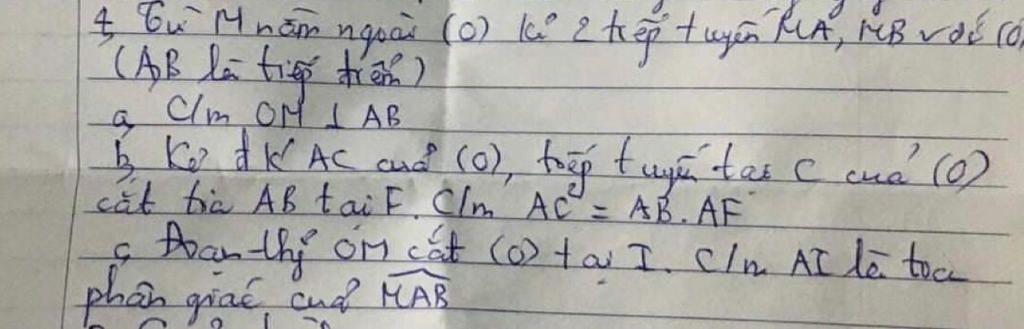 4, Từ M nằm ngoài (O) kẻ 2 tiếp tuyến MA, MB với (O)
(A,B là tiếp
a, C/m OM ⊥ AB
b, Kẻ đ kí AC của (O), tiếp tuyến tại C của (O)
cắt tia AB tại F. C/m AC² = AB.AF
c, Đoạn thg OM cắt (O) tại I. C/m AI là tia
phân giác của MAB